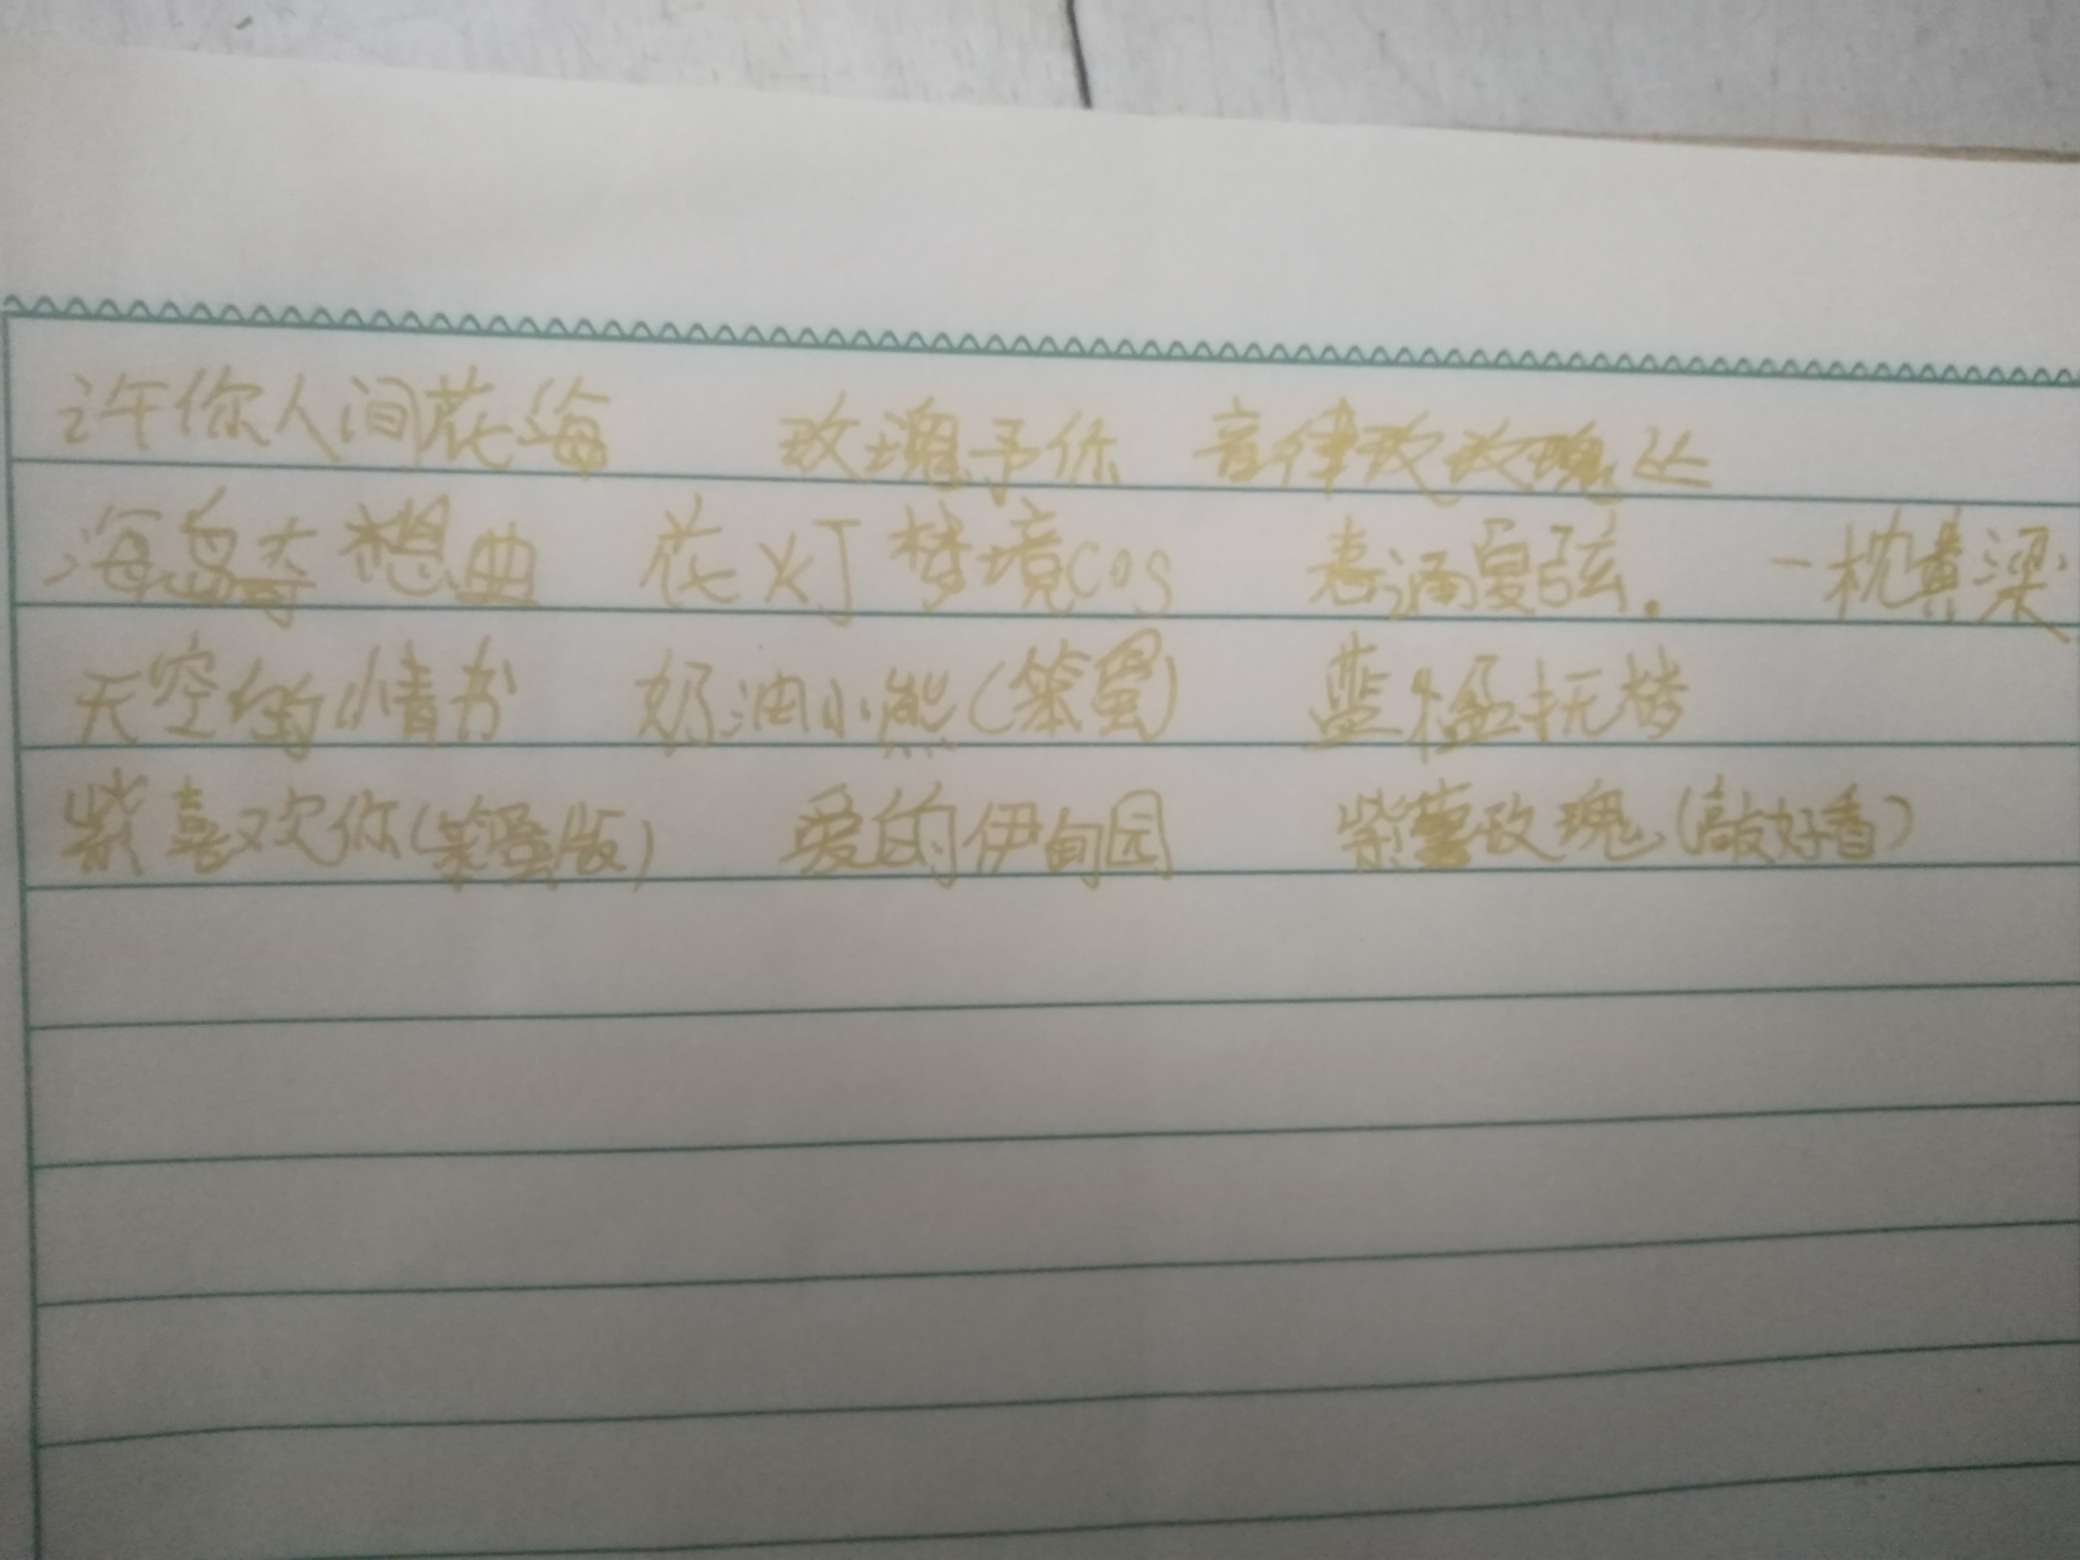 许你人间花海 玫瑰予你 音律玫玫瑰丛
海岛奇想曲 花灯梦境cos 春涌夏弦。 一枕黄梁
天空的情书 奶油小熊(笨蛋) 蓝楹抚梦
紫喜欢你(笨蛋版) 爱的伊甸园 紫薯玫瑰(敲好香)